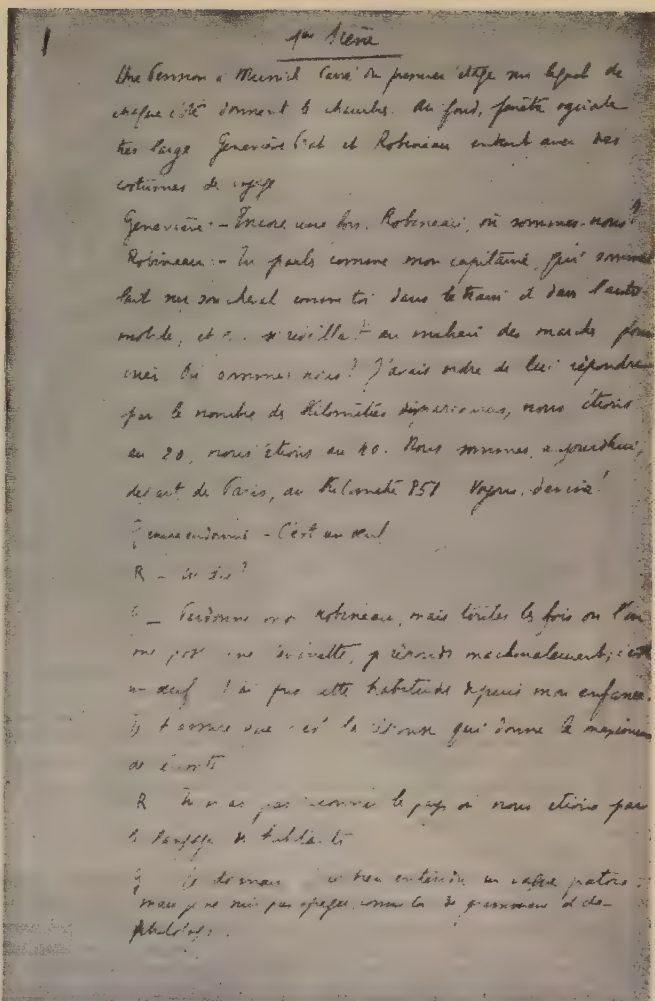 1
1ère Scène
Une Pension à Munich Carré du premier étage sur lequel de
chaque côté donnent les chambres. Au fond, fenêtre ogivale
très large Geneviève Prat et Robineau entrent avec des
costumes de voyage
Geneviève - Encore une fois, Robineau, où sommes-nous?
Robineau - Tu parles comme mon capitaine, qui sommeil
lait sur son cheval comme toi dans le train et dans l'auto-
mobile, et se réveillait au milieu des marches pour
crier Où sommes nous? J'avais ordre de lui répondre
par le nombre de kilomètres nous étions
au 20, nous étions au 40. Nous sommes, aujourdhui,
départ de Paris, au Kilomètre 851 Voyons, devine!
G encore endormie - C'est un œuf
R - Tu dis?
G - Pardonne moi Robineau, mais toutes les fois où l'on
me pose une devinette, je réponds machinalement; c'est
un œuf J'ai pris cette habitude depuis mon enfance.
Je t'assure que c'est la réponse qui donne le maximum
de
R Tu n'as pas reconnu le pays où nous étions par
le langage des habitants
G j'ai bien entendu un vague patois
mais je ne suis pas comme toi de grammaire et de
philologie.